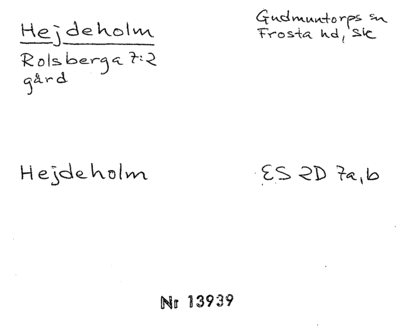 Hejdeholm
Gudmuntorps sn
Frosta hd, Sk
Rolsberga 7:2
gård
Hejdeholm
ES 2D 7a,b
Nr 13939